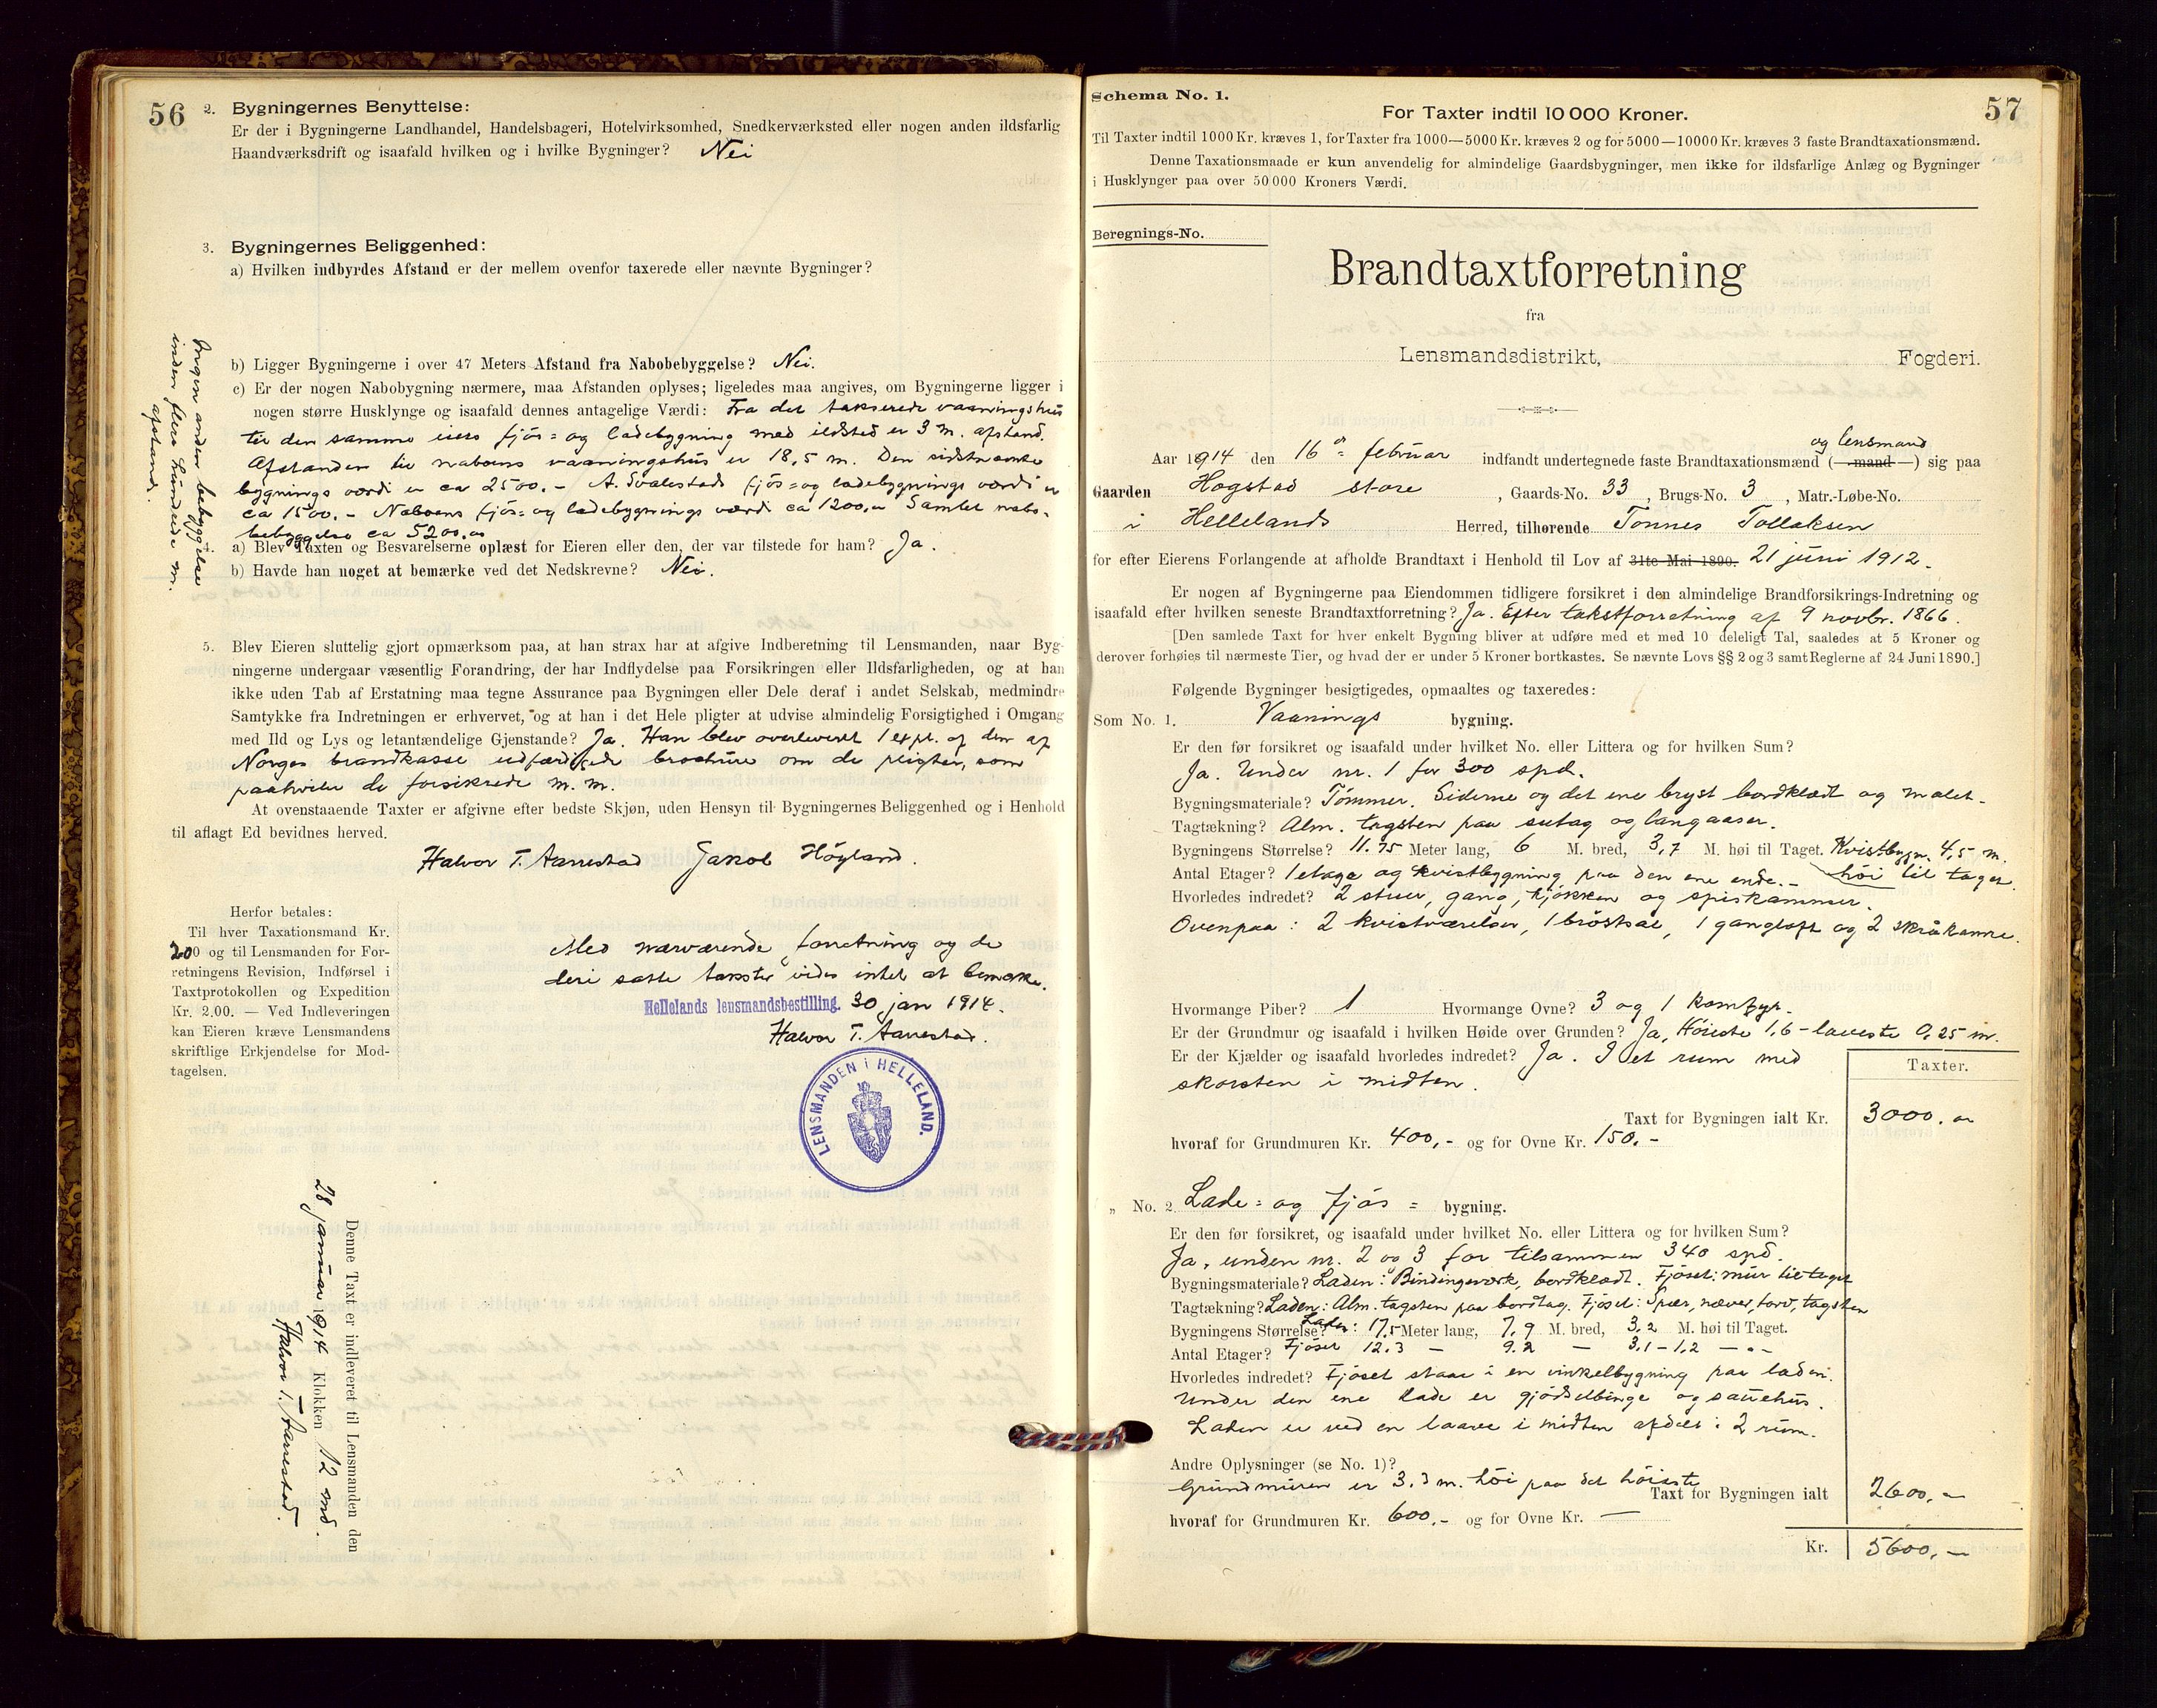 56
2. Bygningernes Benyttelse:
Er der i Bygningerne Landhandel, Handelsbageri, Hotelvirksomhed, Snedkerværksted eller nogen anden ildsfarlig
Haandværksdrift og isaafald hvilken og i hvilke Bygninger? Nei
3. Bygningernes Beliggenhed:
a) Hvilken indbyrdes Afstand er der mellem ovenfor taxerede eller nævnte Bygninger?
b) Ligger Bygningerne i over 47 Meters Afstand fra Nabobebyggelse? Nei.
c) Er der nogen Nabobygning nærmere, maa Afstanden oplyses; ligeledes maa angives, om Bygningerne ligger i
nogen større Husklynge og isaafald dennes antagelige Værdi: Fra det takserede vaaningshus
til den samme eiers fjøs= og ladebygning med ildsted er 3 m. afstand.
Afstanden til naboens vaaningshus er 18,5 m. Den sidstnævnte
bygnings værdi er ca 2500.- A. Svalestads fjøs= og ladebygnings værdi er
ca 1500. - Naboens fjøs= og ladebygnings værdi ca 1200,00 Samlet nabo-
bebyggelse ca 5200.00
Ingen anden bebyggelse
inden flere hundrede m.
afstand.
a) Blev Taxten og Besvarelserne oplæst for Eieren eller den, der var tilstede for ham? Ja.
b) Havde han noget at bemærke ved det Nedskrevne? Nei.
5. Blev Eieren sluttelig gjort opmærksom paa, at han strax har at afgive Indberetning til Lensmanden, naar Byg-
ningerne undergaar væsentlig Forandring, der har Indflydelse paa Forsikringen eller Ildsfarligheden, og at han
ikke uden Tab af Erstatning maa tegne Assurance paa Bygningen eller Dele deraf i andet Selskab, medmindre
Samtykke fra Indretningen er erhvervet, og at han i det Hele pligter at udvise almindelig Forsigtighed i Omgang
med Ild og Lys og letantændelige Gjenstande? Ja. Han blev overleveret 1 expl. af den af
Norges brandkasse udfærdigede brochure om de pligter, som
paahviler de forsikrede m. m.
At ovenstaaende Taxter er afgivne efter bedste Skjøn, uden Hensyn til Bygningernes Beliggenhed og i Henhold
til aflagt Ed bevidnes herved.
Halvor T. Aarrestad Jakob Høyland.
Herfor betales:
Til hver Taxationsmand Kr.
200 og til Lensmanden for For-
retningens Revision, Indførsel i
Taxtprotokollen og Expedition
Kr. 2,00. — Ved Indleveringen
kan Eieren kræve Lensmandens
skriftlige Erkjendelse for Mod-
tagelsen.
Med nærværende forretning og de
deri satte takster vides intet at bemærke.
Hellelands lensmandsbestilling. 30 jan 1914.
Halvor T. Aarrestad.
LENSMANDEN I HELLELAND.
Denne Taxt er indleveret til Lensmanden den
28 januar 1914 Klokken 12 md.
Halvor T. Aarrestad.
57
Schema No. 1.
For Taxter indtil 10 000 Kroner.
Til Taxter indtil 1000 Kr. kræves 1, for Taxter fra 1000—5000 Kr. kræves 2 og for 5000—10000 Kr. kræves 3 faste Brandtaxationsmænd.
Denne Taxationsmaade er kun anvendelig for almindelige Gaardsbygninger, men ikke for ildsfarlige Anlæg og Bygninger
i Husklynger paa over 50 000 Kroners Værdi.
Beregnings-No.
Brandtaxtforretning
fra
Lensmandsdistrikt, Fogderi.
og lensmand
Aar 1914 den 16de februar indfandt undertegnede faste Brandtaxationsmænd (—mand—) sig paa
Gaarden Hogstad store, Gaards-No. 33, Brugs-No. 3, Matr.-Løbe-No.
i Hellelands Herred, tilhørende Tønnes Tollaksen
for efter Eierens Forlangende at afholde Brandtaxt i Henhold til Lov af 31te Mai 1890. 21 juni 1912.
Er nogen af Bygningerne paa Eiendommen tidligere forsikret i den almindelige Brandforsikrings-Indretning og
isaafald efter hvilken seneste Brandtaxtforretning? Ja. Efter takstforretning af 9 novbr. 1866.
[Den samlede Taxt for hver enkelt Bygning bliver at udføre med et med 10 deleligt Tal, saaledes at 5 Kroner og
derover forhøies til nærmeste Tier, og hvad der er under 5 Kroner bortkastes. Se nævnte Lovs §§ 2 og 3 samt Reglerne af 24 Juni 1890.]
Følgende Bygninger besigtigedes, opmaaltes og taxeredes:
Som No. 1. Vaanings bygning.
Er den før forsikret og isaafald under hvilket No. eller Littera og for hvilken Sum?
Ja. Under nr. 1 for 300 spd.
Bygningsmateriale? Tømmer. Siderne og det ene bryst bordklædt og malet.
Tagtækning? Alm. tagsten paa sutag og langaaser.
Bygningens Størrelse? 11.75 Meter lang, 6 M. bred, 3,7 M. høi til Taget. Kvistbygn. 4,5 m.
Antal Etager? 1 etage og kvistbygning paa den ene ende. - høi til taget.
Hvorledes indredet? 2 stuer, gang, kjøkken og spiskammer.
Ovenpaa: 2 kvistværelser, 1 brøstsal, 1 gangloft og 2 skråkamre.
Hvormange Piber? 1 Hvormange Ovne? 3 og 1 komfyr.
Er der Grundmur og isaafald i hvilken Høide over Grunden? Ja, Høieste 1,6 - laveste 0,25 m.
Er der Kjælder og isaafald hvorledes indredet? Ja. I et rum med
skorsten i midten.
Taxter.
Taxt for Bygningen ialt Kr. 3000.00
hvoraf for Grundmuren Kr. 400,- og for Ovne Kr. 150.-
„ No. 2 Lade= og fjøs= bygning.
Er den før forsikret, og isaafald under hvilket No. eller Littera og for hvilken Sum?
Ja, under nr. 2 og 3 for tilsammen 340 spd.
Bygningsmateriale? Laden: Bindingsværk, bordklædt. Fjøset: mur til taget
Tagtækning? Laden: Alm. tagsten paa bordtag. Fjøset: Spær, næver, torv, tagsten
Bygningens Størrelse? Laden: 17,5 Meter lang, 7,9 M. bred, 3,2 M. høi til Taget.
Antal Etager? Fjøset 12.3 — 9.2 — 3,1-1,2 — " —
Hvorledes indredet? Fjøset staar i en vinkelbygning paa laden.
Under den ene lade er gjødselbinge og sauehus.
Laden er ved en laave i midten afdelt i 2 rum.
Andre Oplysninger (se No. 1)?
Grundmuren er 3.3 m. høi paa det høieste
Taxt for Bygningen ialt 2600,-
hvoraf for Grundmuren Kr. 600,- og for Ovne Kr. —
Kr. 5600,-